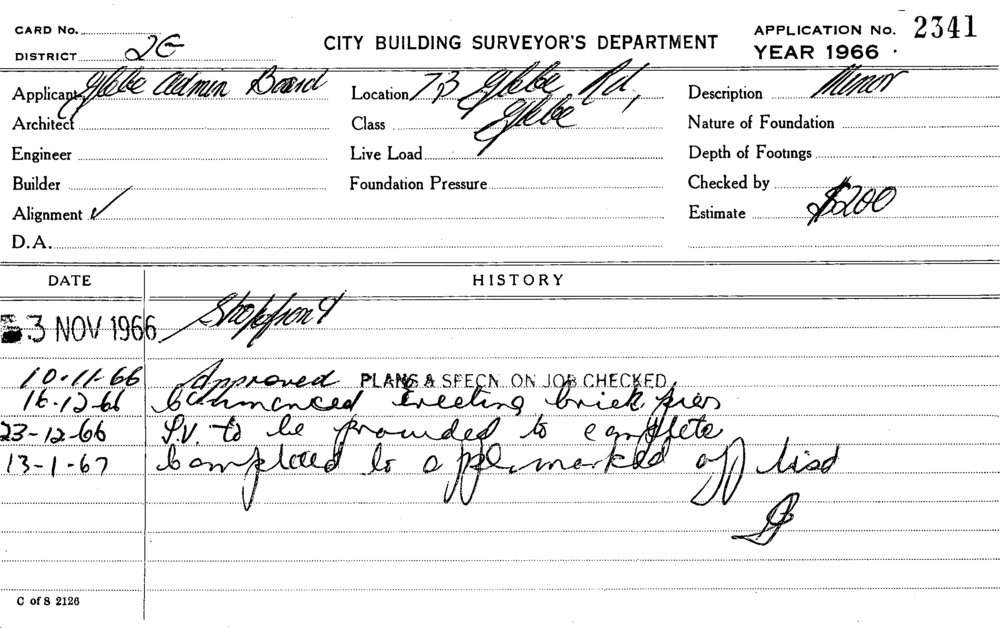 CARD No.
DISTRICT 2G
CITY BUILDING SURVEYOR'S DEPARTMENT
APPLICATION No. 2341
YEAR 1966
Applicant Glebe Admin Board
Location 73 Glebe Rd, Glebe
Description Minor
Architect
Class
Nature of Foundation
Engineer
Live Load
Depth of Footings
Builder
Foundation Pressure
Checked by
Alignment ✓
Estimate $200
D.A.
DATE HISTORY
3 NOV 1966 Shopfront
10-11-66 Approved PLANS & SPECN. ON JOB CHECKED
16-12-66 Commenced Erecting brick piers
23-12-66 S.V. to be provided to complete
13-1-67 Completed to appl. marked off
C of S 2126